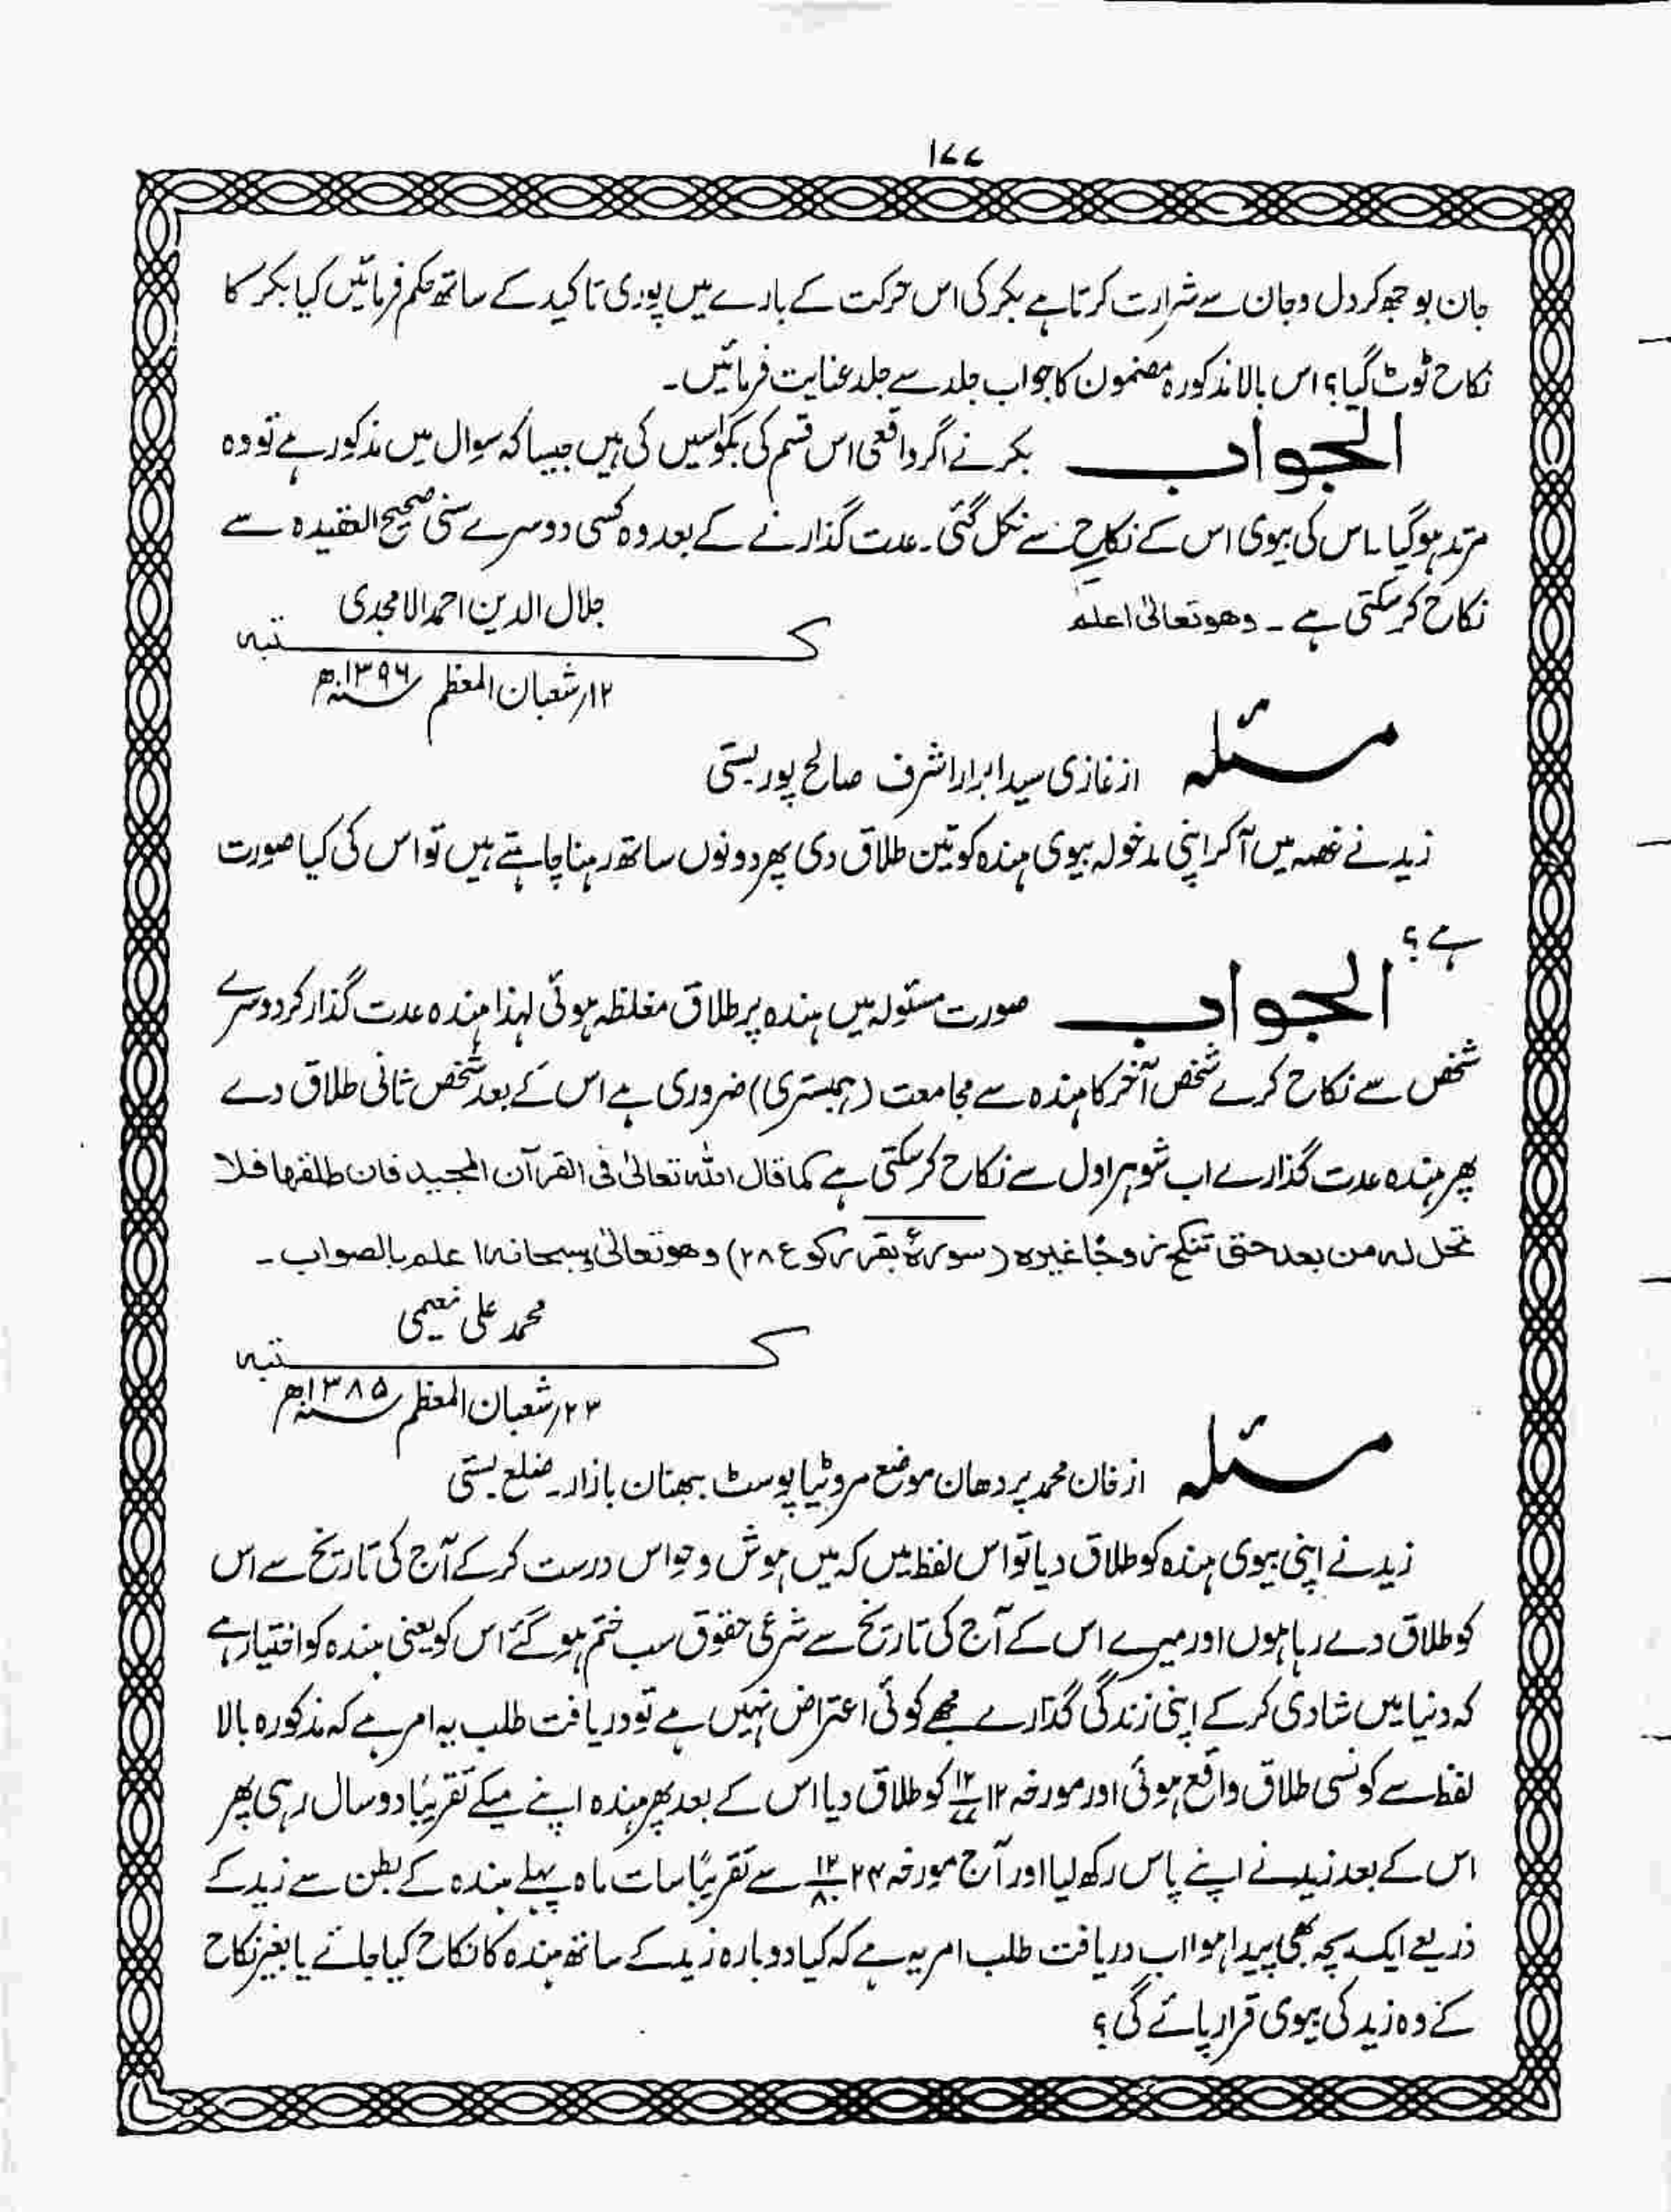 ۱۷۷
جان بوجھ کر دل وجان سے شرارت کرتا ہے بکر کی اس حرکت کے بارے میں پوری تاکید کے ساتھ حکم فرمائیں کیا بکر کا
نکاح ٹوٹ گیا؟ اس بالا مذکورہ مضمون کا جواب جلد سے جلد عنایت فرمائیں۔
الجواب بکر نے اگر واقعی اس قسم کی بکواسیں کی ہیں جیسا کہ سوال میں مذکور ہے تو وہ
مرتد ہوگیا۔ اس کی بیوی اس کے نکاح سے نکل گئی۔ عدت گذارنے کے بعد وہ کسی دوسرے سنی صحیح العقیدہ سے
نکاح کرسکتی ہے۔ وھو تعالیٰ اعلم
جلال الدین احمد الامجدی
کتبہ
۱۲؍ شعبان المعظم ۱۳۹۶ھ
مسئلہ از غازی سید ابرار اشرف صالح پور بستی
زید نے غصہ میں آکر اپنی مدخولہ بیوی ہندہ کو تین طلاق دی پھر دونوں ساتھ رہنا چاہتے ہیں تو اس کی کیا صورت
ہے؟
الجواب صورت مسئولہ میں ہندہ پر طلاق مغلظہ ہوئی لہذا ہندہ عدت گذار کر دوسرے
شخص سے نکاح کرے شخص آخر کا ہندہ سے مجامعت (ہمبستری) ضروری ہے اس کے بعد شخص ثانی طلاق دے
پھر ہندہ عدت گذارے اب شوہر اول سے نکاح کرسکتی ہے کما قال اللہ تعالیٰ فی القرآن المجید فان طلقھا فلا
تحل لہ من بعد حتی تنکح زوجًا غیرہ (سورۂ بقر رکوع ۲۸) وھو تعالیٰ وسبحانہ اعلم بالصواب۔
محمد علی نعیمی
کتبہ
۲۳؍ شعبان المعظم ۱۳۸۵ھ
مسئلہ از خان محمد پردھان موضع مروٹیا پوسٹ بھنان بازار۔ ضلع بستی
زید نے اپنی بیوی ہندہ کو طلاق دیا تو اس لفظ میں کہ میں ہوش وحواس درست کرکے آج کی تاریخ سے اس
کو طلاق دے رہا ہوں اور میرے اس کے آج کی تاریخ سے شرعی حقوق سب ختم ہوگئے اس کو یعنی ہندہ کو اختیار ہے
کہ دنیا میں شادی کرکے اپنی زندگی گذارے مجھے کوئی اعتراض نہیں ہے تو دریافت طلب یہ امر ہے کہ مذکورہ بالا
لفظ سے کونسی طلاق واقع ہوئی اور مورخہ ۱۲ ۱۲/۷۷ کو طلاق دیا اس کے بعد پھر ہندہ اپنے میکے تقریبًا دو سال رہی پھر
اس کے بعد زید نے اپنے پاس رکھ لیا اور آج مورخہ ۲۴ ۱۲/۸۰ سے تقریبًا سات ماہ پہلے ہندہ کے بطن سے زید کے
ذریعے ایک بچہ بھی پیدا ہوا اب دریافت طلب امر یہ ہے کہ کیا دوبارہ زید کے ساتھ ہندہ کا نکاح کیا جائے یا بغیر نکاح
کئے وہ زید کی بیوی قرار پائے گی؟